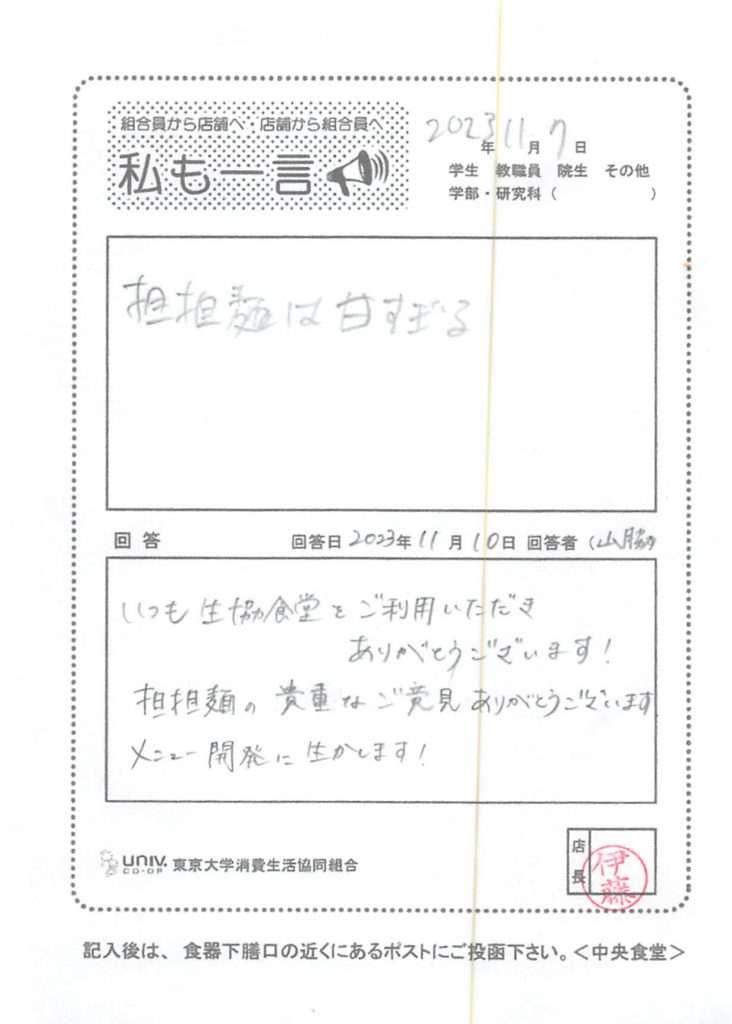 組合員から店舗へ・店舗から組合員へ
私も一言
2023年11月7日
学生 教職員 院生 その他
学部・研究科( )
担担麺は甘すぎる
回答 回答日2023年11月10日 回答者(山脇
いつも生協食堂をご利用いただき
ありがとうございます!
担担麺の貴重なご意見ありがとうございます
メニュー開発に生かします!
UNIV. CO-OP 東京大学消費生活協同組合
店長 伊藤
記入後は、食器下膳口の近くにあるポストにご投函下さい。<中央食堂>